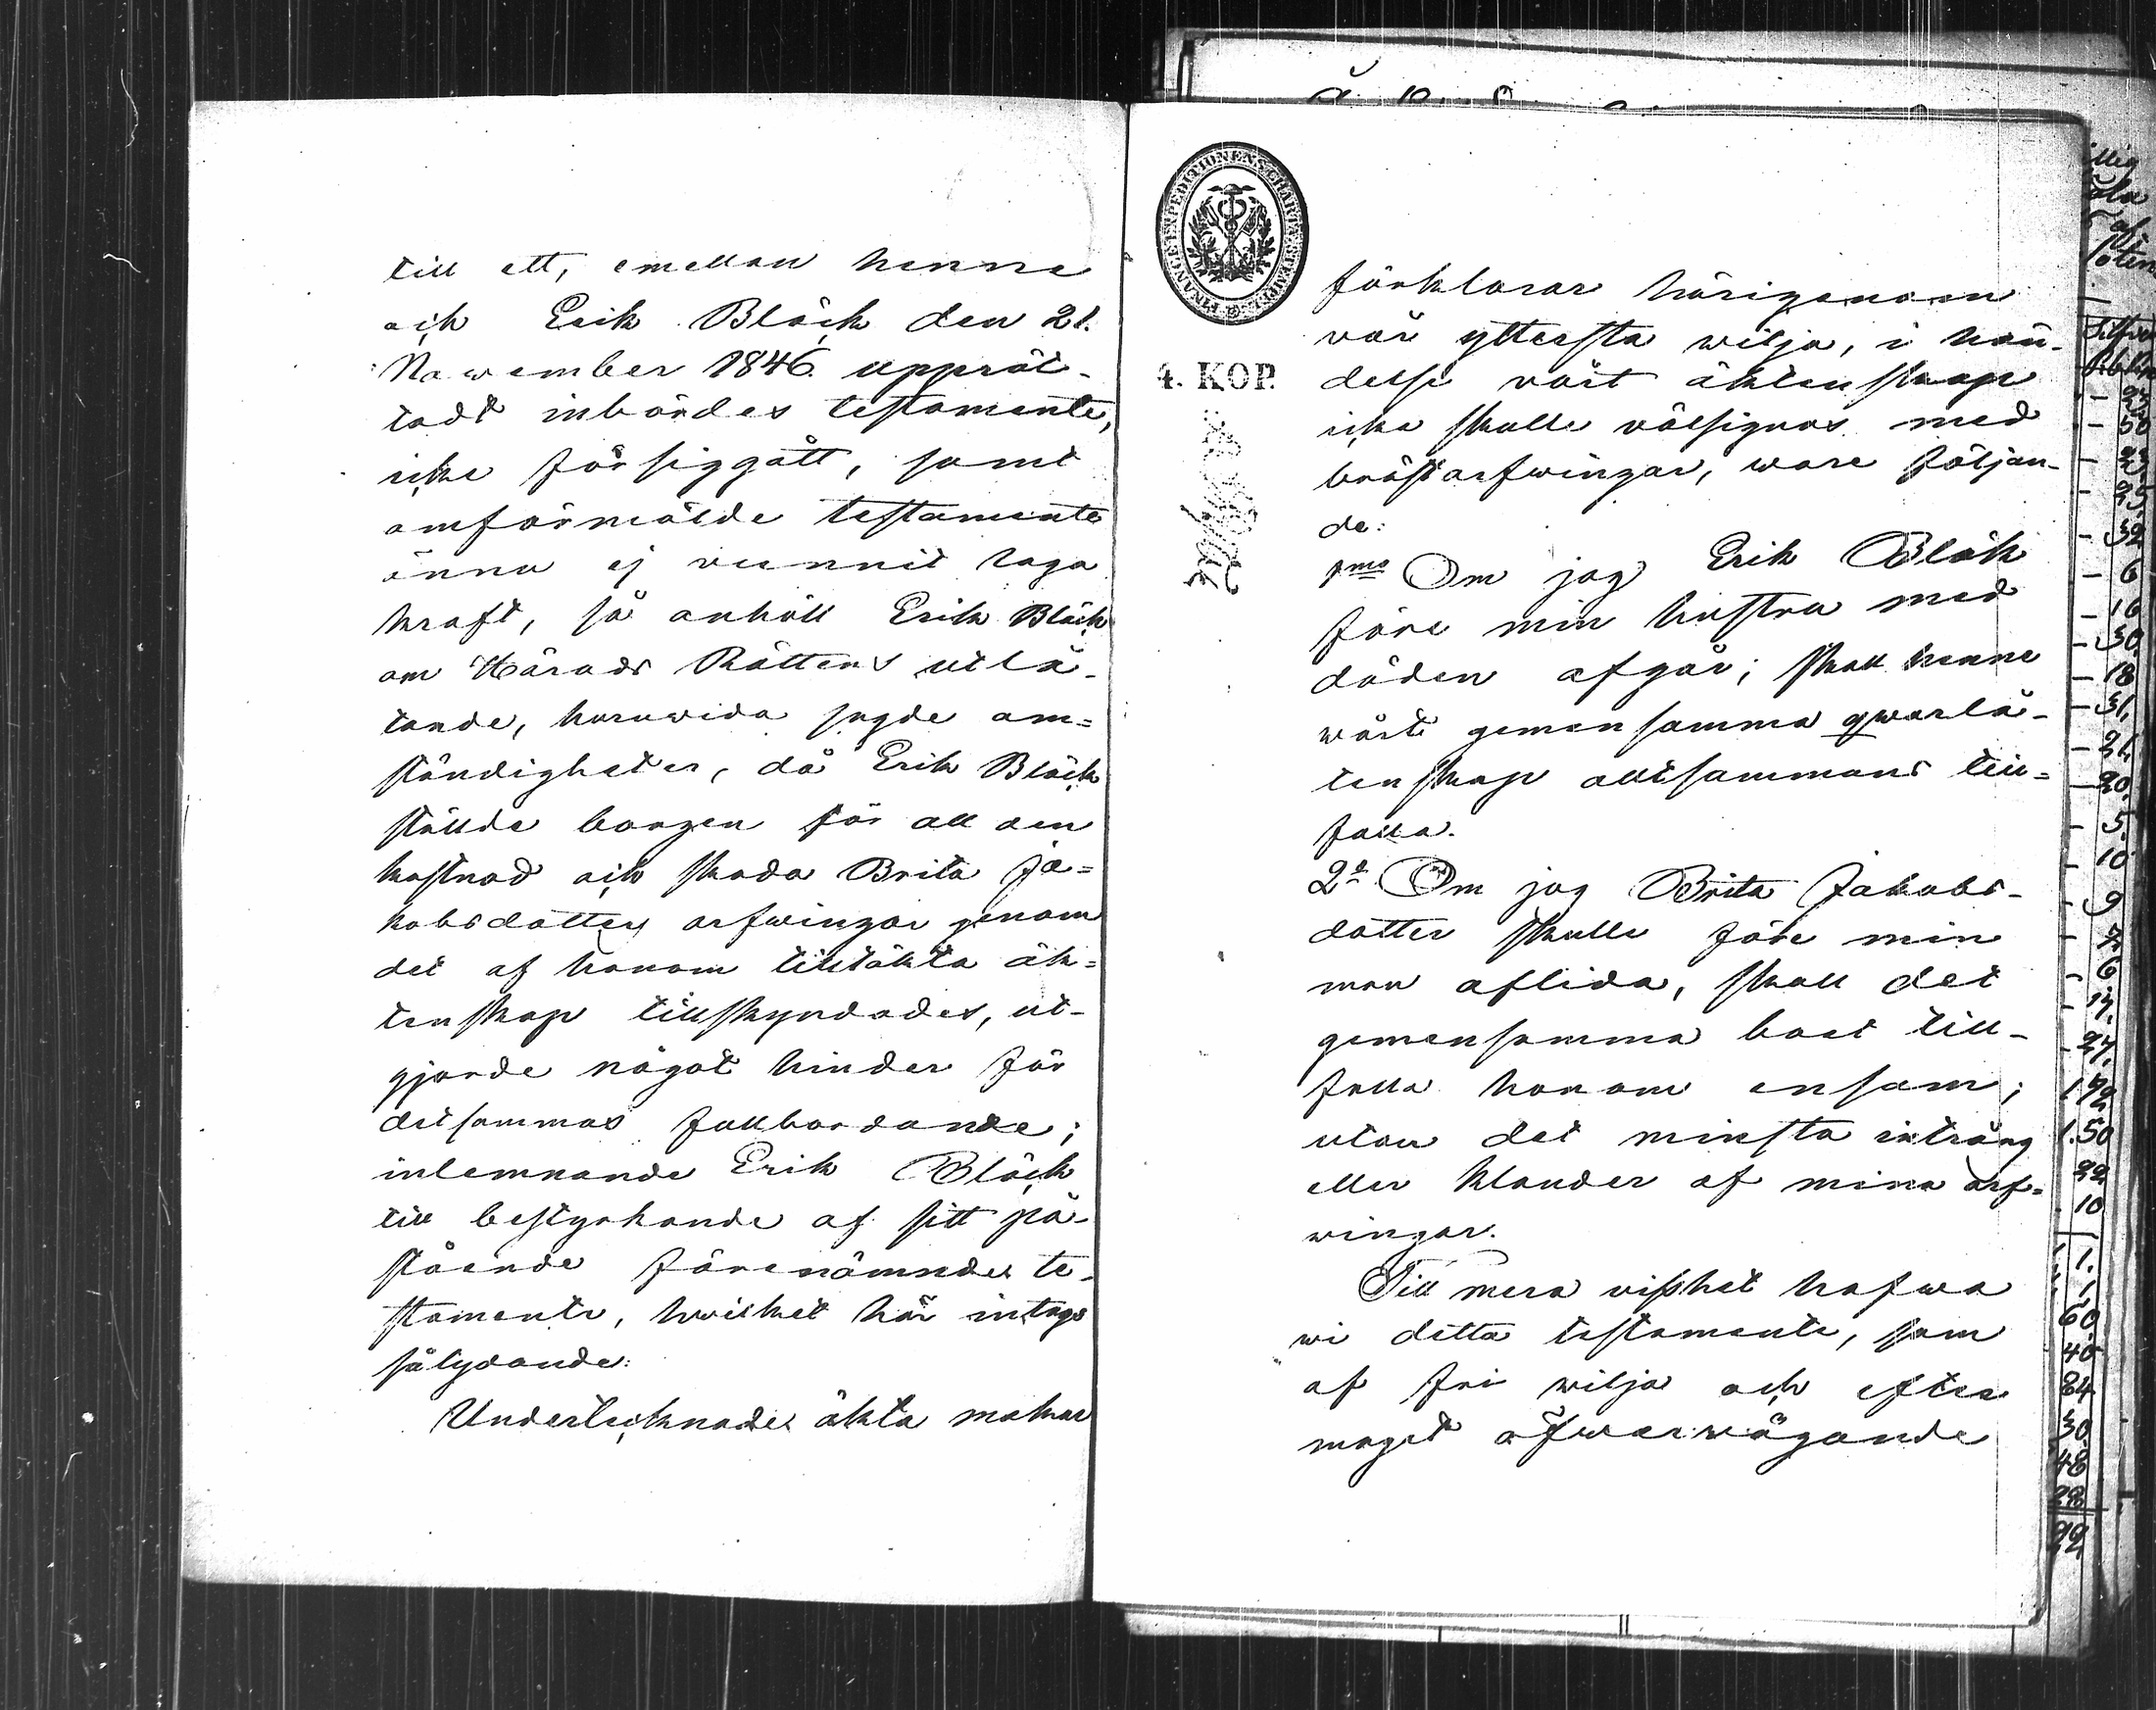 till ett, emellan henne
och Erik Bläck den 21.
November 1846 upprät-
tadt inbördes testamente,
icke försiggått, samt
omförmälde testamente
ännu ej vunnit laga
kraft, så anhöll Erik Bläck
om Härads Rättens utlå-
tande, huruvida sagde om=
ständigheter, då Erik Bläck
ställde borgen för all den
kostnad och skada Brita Ja=
kobsdotters arfwingar genom
det af honom tilltäkta äk=
tenskap tillskyndades, ut-
gjorde något hinder för
detsammas fullbordande;
inlemnande Erik Bläck
till bestyrkande af sitt på-
stående förenämnde te-
stamente, hwilket här intogs
sålydande:
Undertecknade äkta makar
FINANCE EXPEDITIONENS CHARTÆ STEMPEL
4. KOP.
förklarar härigenom
vår yttersta wilja, i hän-
delse vårt äktenskap
icke skulle välsignas med
bröstarfwingar, wara följan-
de:
1mo Om jag Erik Bläk
före min hustru med
döden afgår; skall henne
wårt gemensamma qwarlå-
tenskap alltsammans till=
falla.
2o Om jag Brita Jakobs-
dotter skulle före min
man aflida, skall det
gemensamma boet till-
falla honom ensam;
utan det minsta intrång
eller klander af mina arf=
wingar.
Till mera visshet hafwa
wi detta testamente, som
af fri wilja och efter
moget öfwerwägande